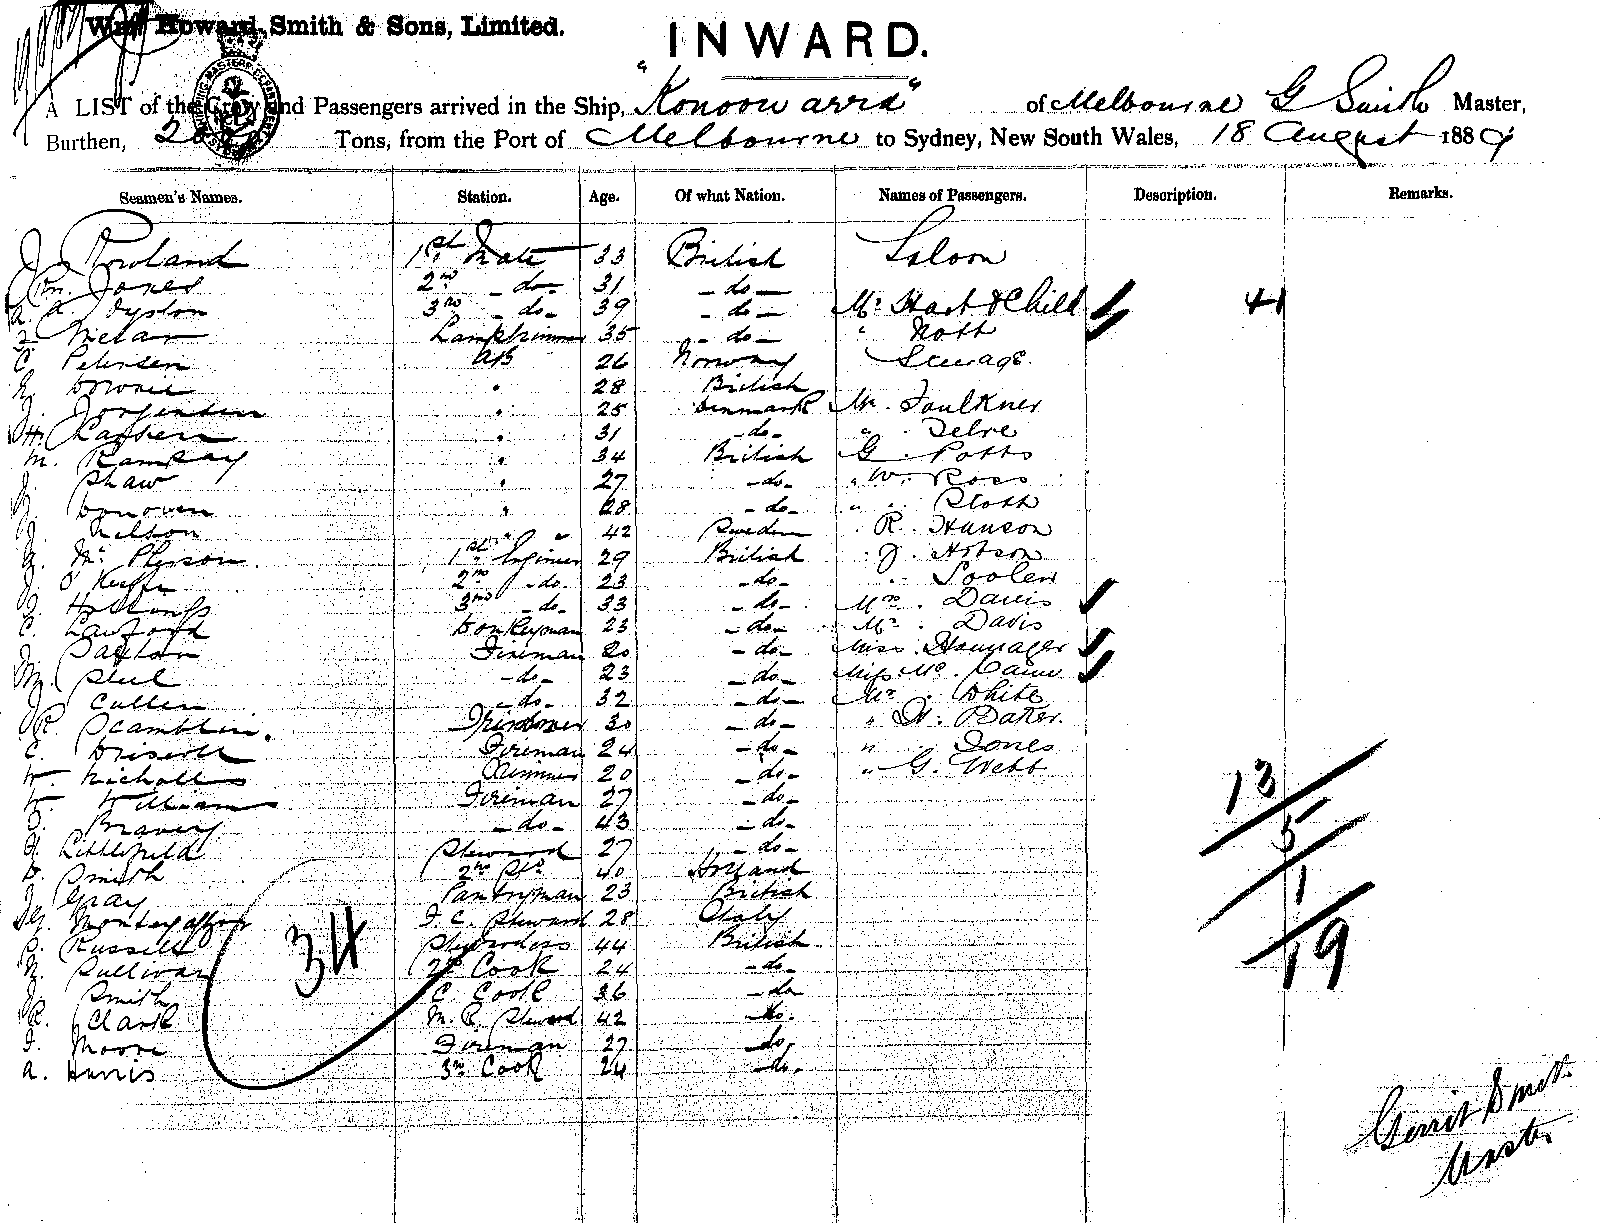 Wm Howard Smith & Sons, Limited.
INWARD.
A LIST of the Crew and Passengers arrived in the Ship, "Konoowarra" of Melbourne G Smith Master,
Burthen, Tons, from the Port of Melbourne to Sydney, New South Wales, 18 August 1889
Seamen's Names. Station. Age. Of what Nation. Names of Passengers. Description. Remarks.
J Rowland 1st Mate 33 British Saloon
Jones 2nd -do- 31 -do-
A. A. Dyston 3rd -do- 39 -do- Mr Hart & Child 41
Lamptrimmer 35 -do- " Nott
C Petersen AB 26 Norway Steerage
Downie " 28 British
J. Jorgensen " 25 Denmark Mr. Faulkner
H. Larsen " 31 -do- "
M. Ramsay " 34 British G. Potts
Shaw " 27 -do- " W. Ross
Donoven " 28 -do- " " Sloth
J. Nelson " " 42 Sweden R. Hanson
Mc Pherson. 1st Engineer 29 British J. Hobson
J O'Keeffe 2nd -do- 23 -do-
J. Hollings 3rd -do- 33 -do- Mrs. Davis
C. Lawford Donkeyman 23 -do- Mr. Davis
Fireman 20 -do- Miss
Steel -do- 23 -do- Miss Mc
J Cullen -do- 32 -do- Mr. White
R. Scamblin. 30 -do- " Baker.
C. Driscoll Fireman 24 -do- " Jones
W. Nicholls Trimmer 20 -do- " G. Webb
W. Williams Fireman 27 -do-
Bravery -do- 43 -do-
H. Littlefield Steward 27 -do-
D. Smith 2nd Std 40 Holland
J. Gray Pantryman 23 British
F.C. Steward 28 Italy
Russell Stewardess 44 British
Sullivan 2nd Cook 24 -do-
J. Smith C. Cook 36 -do-
R. Clark M.R. Steward 42 -do-
F. Moore Fireman 27 -do-
A. Harris 3rd Cook 24 -do-
34
13
5
1
19
Gerrit Smith
Master